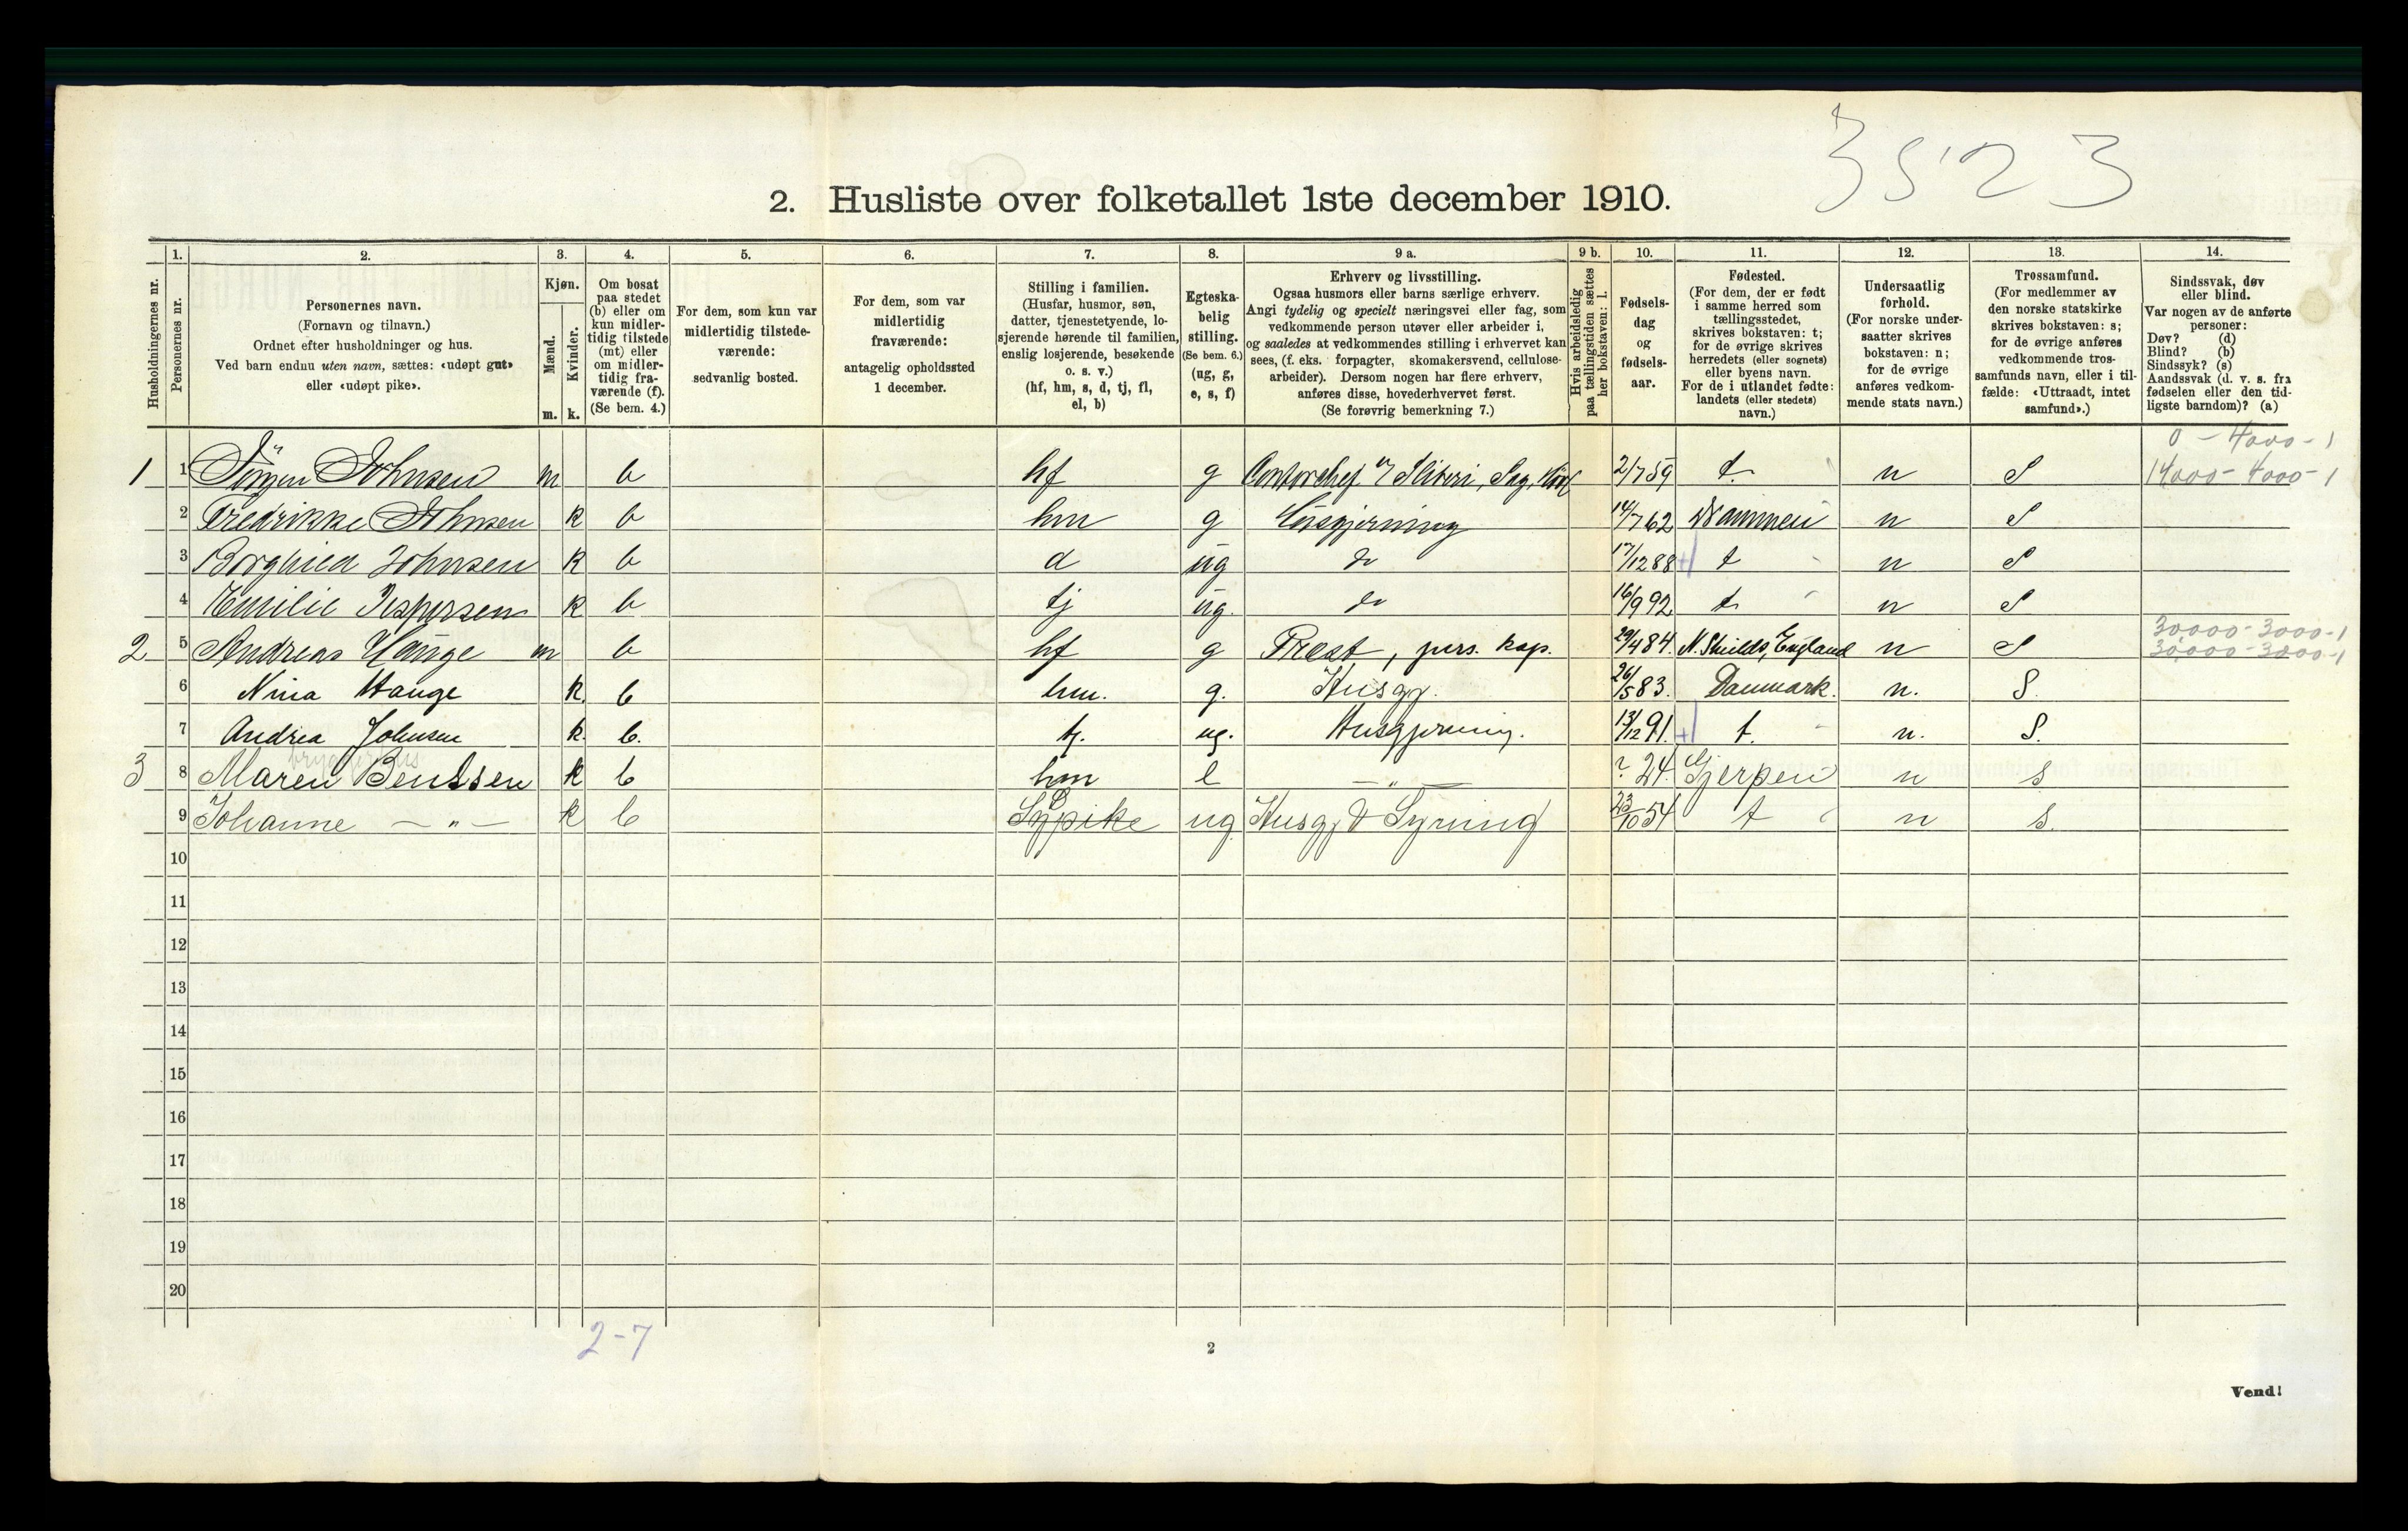 3523
2. Husliste over folketallet 1ste december 1910.
Husholdningernes nr.
1. Personernes nr.
2. Personernes navn.
(Fornavn og tilnavn.)
Ordnet efter husholdninger og hus.
Ved barn endnu uten navn, sættes: «udøpt gut»
eller «udøpt pike».
3. Kjøn.
Mænd. m.
Kvinder. k.
4. Om bosat
paa stedet
(b) eller om
kun midler-
tidig tilstede
(mt) eller
om midler-
tidig fra-
værende (f).
(Se bem. 4.)
5. For dem, som kun var
midlertidig tilstede-
værende:
sedvanlig bosted.
6. For dem, som var
midlertidig
fraværende:
antagelig opholdssted
1 december.
7. Stilling i familien.
(Husfar, husmor, søn,
datter, tjenestetyende, lo-
sjerende hørende til familien,
enslig losjerende, besøkende
o. s. v.)
(hf, hm, s, d, tj, fl,
el, b)
8. Egteska-
belig
stilling.
(Se bem. 6.)
(ug, g,
e, s, f)
9 a. Erhverv og livsstilling.
Ogsaa husmors eller barns særlige erhverv.
Angi tydelig og specielt næringsvei eller fag, som
vedkommende person utøver eller arbeider i,
og saaledes at vedkommendes stilling i erhvervet kan
sees, (f. eks. forpagter, skomakersvend, cellulose-
arbeider). Dersom nogen har flere erhverv,
anføres disse, hovederhvervet først.
(Se forøvrig bemerkning 7.)
9 b. Hvis arbeidsledig
paa tællingstiden sættes
her bokstaven: l.
10. Fødsels-
dag
og
fødsels-
aar.
11. Fødested.
(For dem, der er født
i samme herred som
tællingsstedet,
skrives bokstaven: t;
for de øvrige skrives
herredets (eller sognets)
eller byens navn.
For de i utlandet fødte:
landets (eller stedets)
navn.)
12. Undersaatlig
forhold.
(For norske under-
saatter skrives
bokstaven: n;
for de øvrige
anføres vedkom-
mende stats navn.)
13. Trossamfund.
(For medlemmer av
den norske statskirke
skrives bokstaven: s;
for de øvrige anføres
vedkommende tros-
samfunds navn, eller i til-
fælde: «Uttraadt, intet
samfund».)
14. Sindssvak, døv
eller blind.
Var nogen av de anførte
personer:
Døv? (d)
Blind? (b)
Sindssyk? (s)
Aandssvak (d. v. s. fra
fødselen eller den tid-
ligste barndom)? (a)
0 - 4000 - 1
1 1 Jörgen Johnsen m b hf g Contorchef v/ Sliberi, Sag, 2/7 59 t. n S 14000 - 4000 - 1
2 Fredrikke Johnsen k b hm g Husgjerning 14/7 62 n S
3 Borghild Johnsen k b d ug do 17/12 88 t n S
4 Emilie Jespersen k b tj ug. do 16/9 92 t n S
30,000 - 3000 - 1
2 5 Andreas Hauge m b hf g Prest, pers. kap. 29/4 84. N. Shields, England n S 30,000 - 3000 - 1
6 Nina Hauge k. b hm. g. Husgj. 26/5 83. Danmark. n. S.
7 Andrea Johnsen k. b. tj. ug. Husgjerning. 13/12 91. t. n. S.
bryggerhus
3 8 Maren Bentsen k b hm e — " — ? 24. Gjerpen n s
9 Johanne — " — k b Sypike ug Husgj & Syning 23/10 54 t n s.
10
11
12
13
14
15
16
17
18
19
20
2-7
2
Vend!